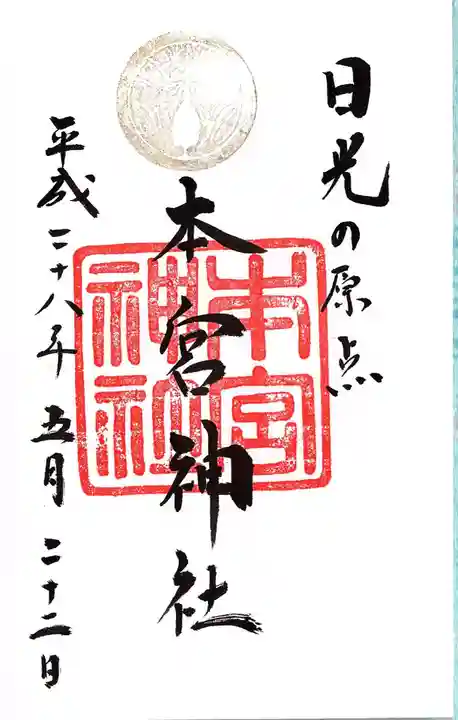 日光の原点
本宮神社
本宮
神社
平成二十八年五月二十二日